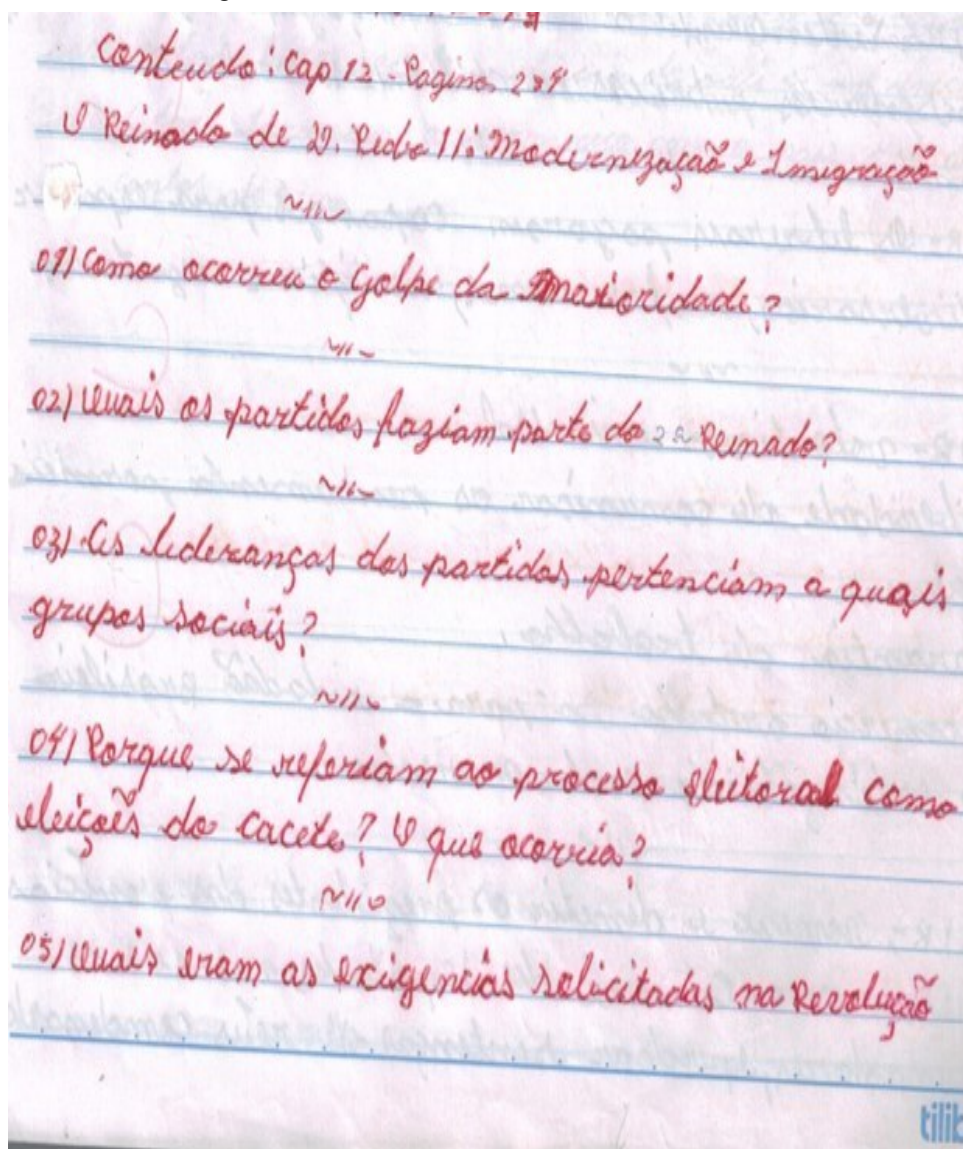 Conteudo: Cap 12 - Pagina 234
O Reinado de D. Pedro II: Modernização e Imigração
~11~
01) Como ocorreu o Golpe da Maioridade?
~11~
02) Quais os partidos faziam parte do 2º Reinado?
~11~
03) As lideranças dos partidos pertenciam a quais
grupos sociais?
~11~
04) Porque se referiam ao processo eleitoral como
eleições do cacete? O que ocorria?
~11~
05) Quais eram as exigencias solicitadas na Revolução
tilib